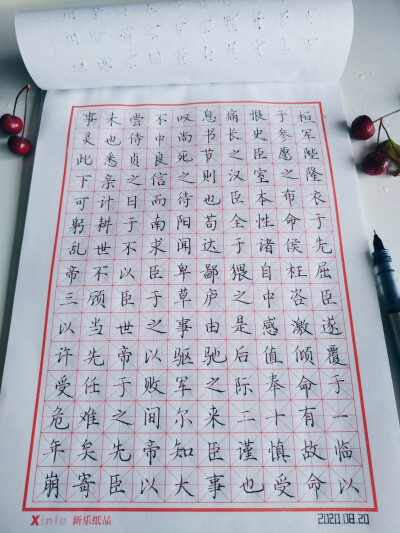 事未尝不叹息痛恨于桓
灵也侍中尚书长史参军
此悉贞良死节之臣愿陛
下亲之信之则汉室之隆
可计日而待也臣本布衣
躬耕于南阳苟全性命于
乱世不求闻达于诸侯先
帝不以臣卑鄙猥自枉屈
三顾臣于草庐之中咨臣
以当世之事由是感激遂
许先帝以驱驰后值倾覆
受任于败军之际奉命于
危难之间尔来二十有一
年矣先帝知臣谨慎故临
崩寄臣以大事也受命以
Xinle 新乐纸品
2020.08.20